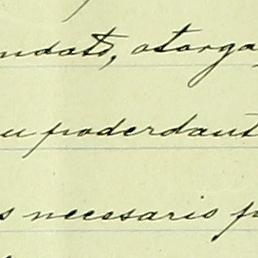 ndató, otorga
u poderdant
s necesaris p